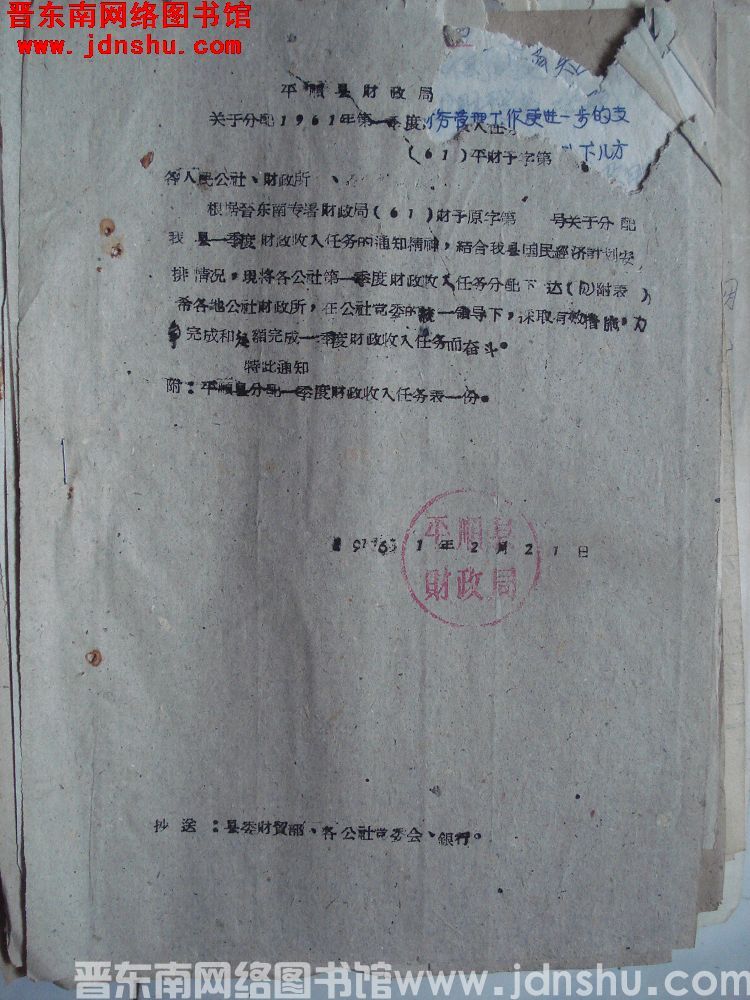 晋东南网络图书馆
www.jdnshu.com
平順县財政局
关于分配1961年第一季度 收入任
务管理工作更进一步的支
(61)平財予字第
下几方
各人民公社、財政所
根据晋东南专署財政局(61)財予原字第 号关于分配
我县一季度財政收入任务的通知精神,結合我县国民經济計划安
排情况,現将各公社第一季度財政收入任务分配下达(附表)
希各地公社財政所,在公社党委的統一領导下,采取有效措施,力
争完成和超額完成一季度財政收入任务而奋斗。
特此通知
附:平順县分配一季度財政收入任务表一份。
1961年2月21日
平順县
財政局
抄送:县委財貿部、各公社党委会、銀行。
晋东南网络图书馆 www.jdnshu.com